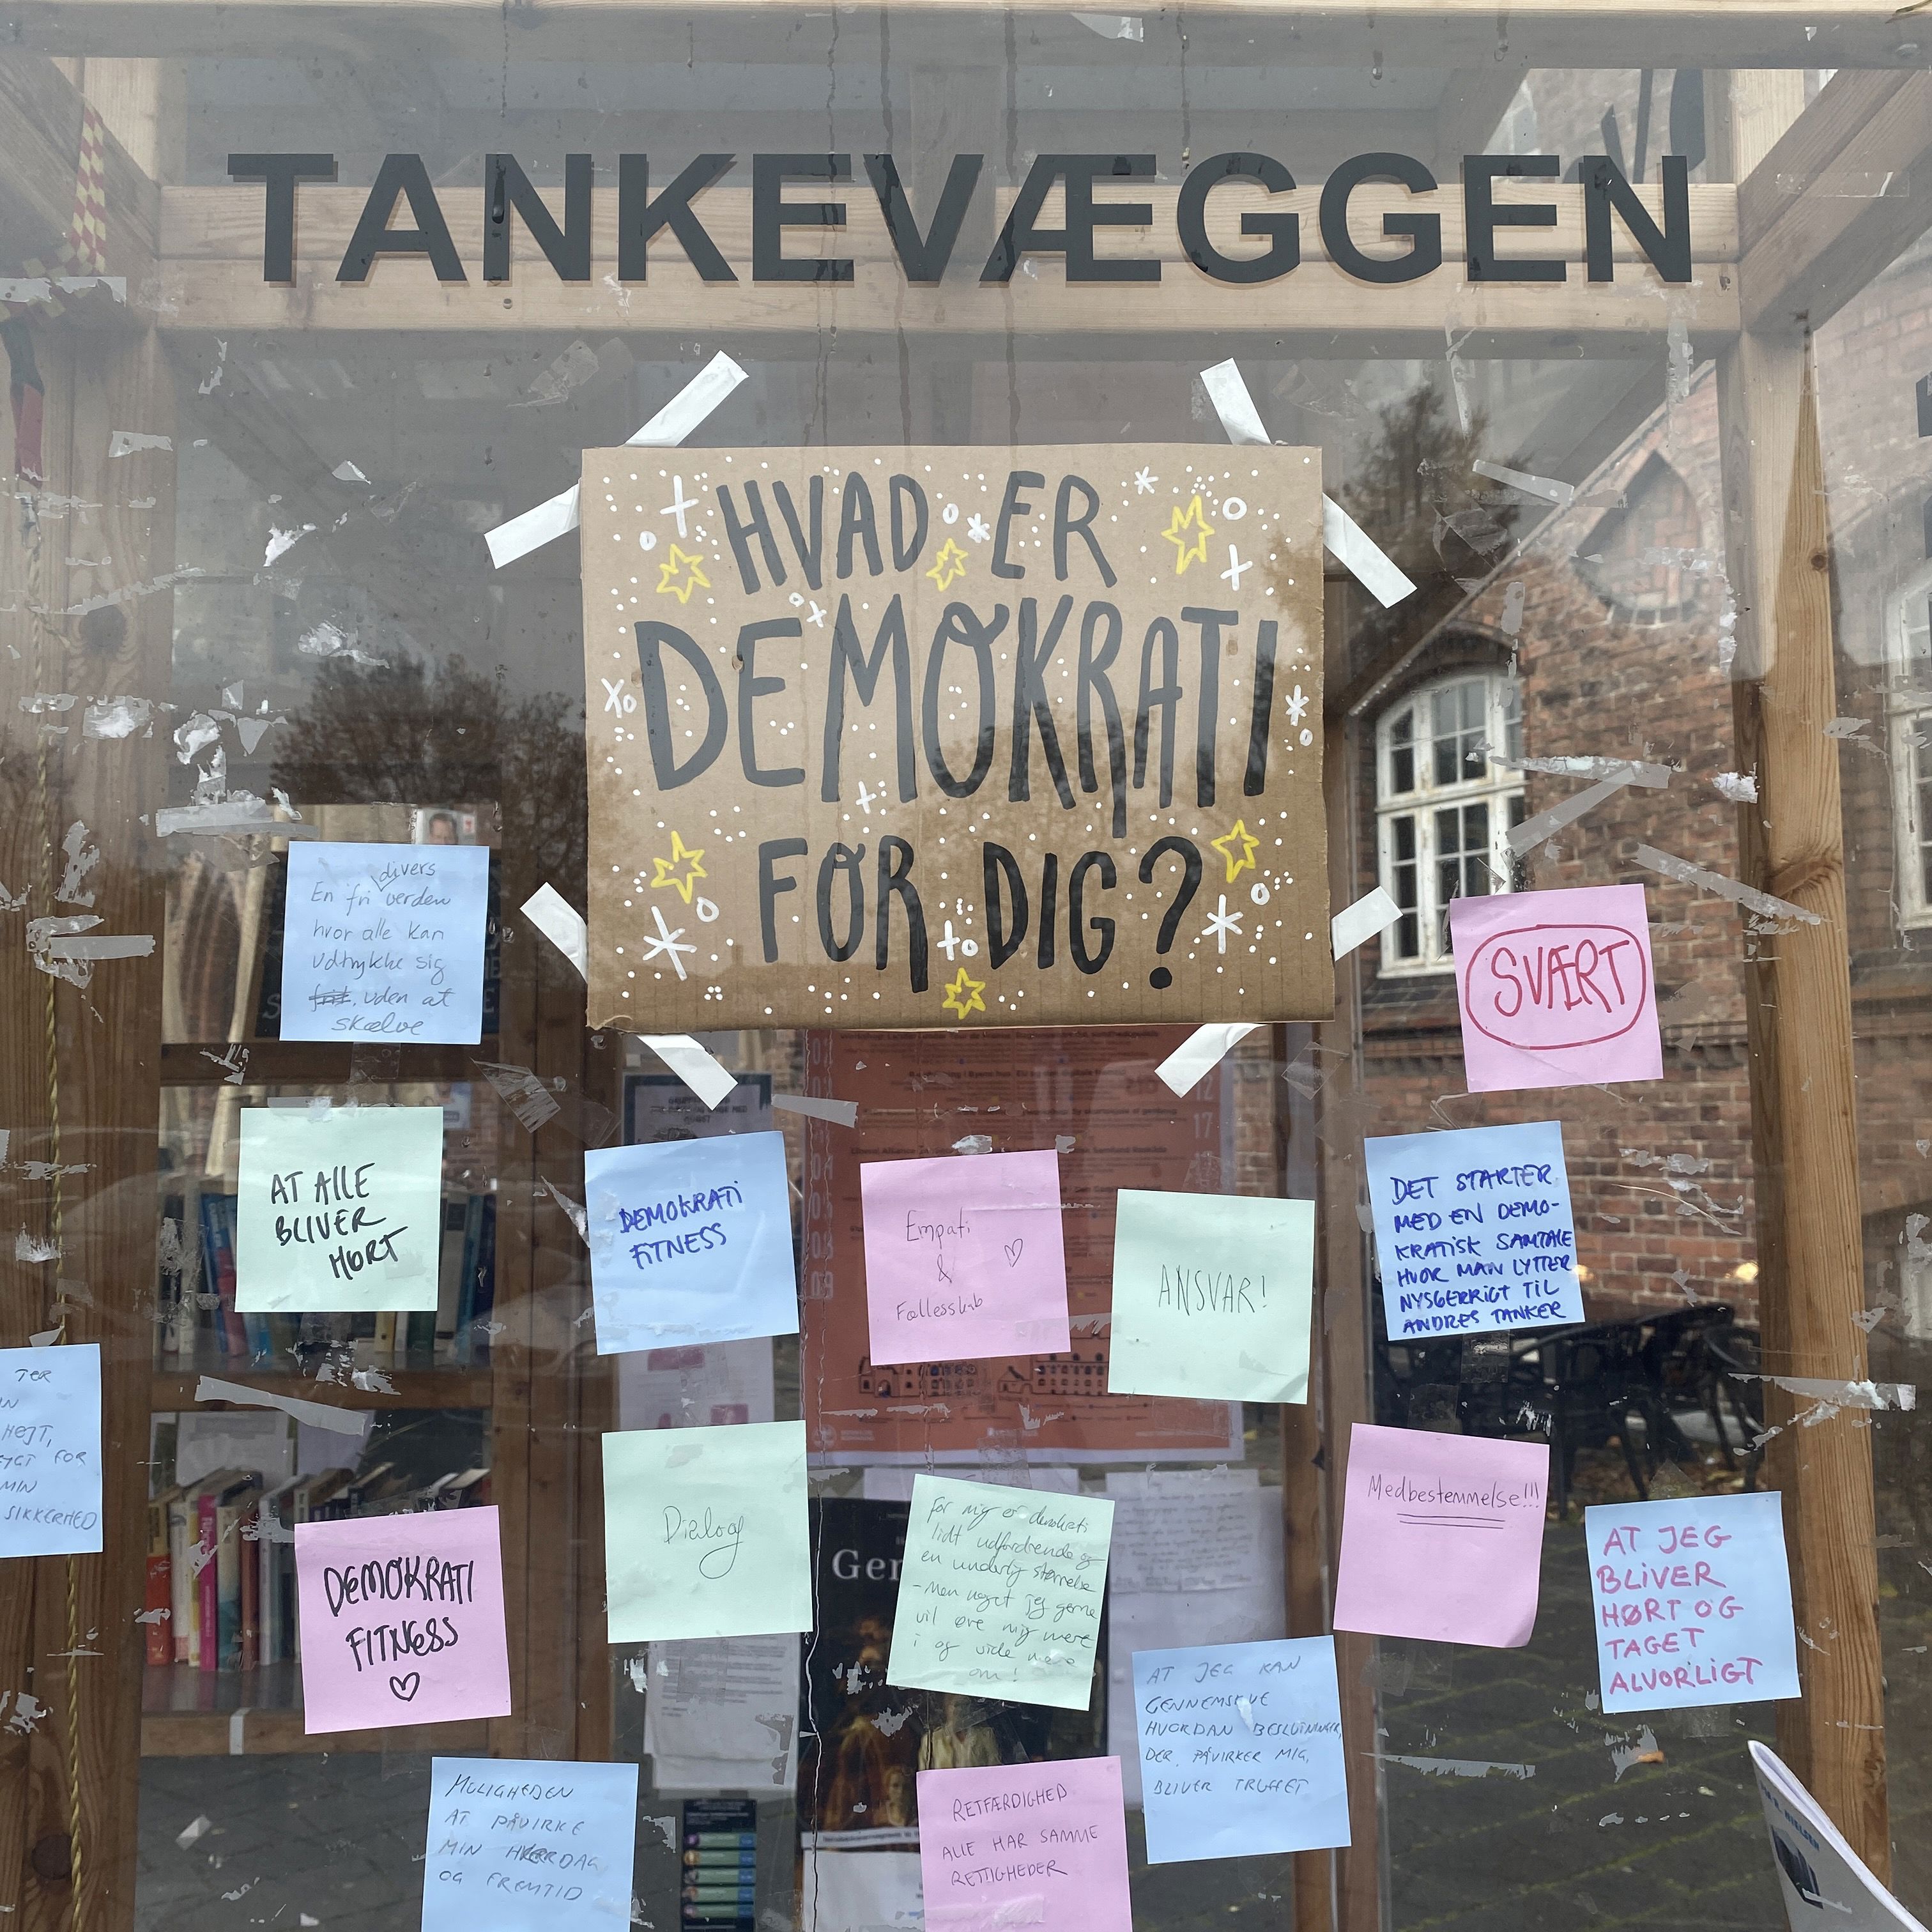 TANKEVÆGGEN
HVAD ER
DEMOKRATI
FOR DIG?
En fri divers verden
hvor alle kan
udtrykke sig
uden at
skælve
SVÆRT
AT ALLE
BLIVER
HØRT
DEMOKRATI
FITNESS
Empati
&
Fællesskab
ANSVAR!
DET STARTER
MED EN DEMO-
KRATISK SAMTALE
HVOR MAN LYTTER
NYSGERRIGT TIL
ANDRES TANKER
HØJT,
FOR
MIN
SIKKERHED
DEMOKRATI
FITNESS
Dialog
For mig er demokrati
lidt udfordrende og
en underlig størrelse
- Men noget jeg gerne
vil øve mig mere
i og vide mere
om!
Medbestemmelse!!!
AT JEG
BLIVER
HØRT OG
TAGET
ALVORLIGT
AT JEG KAN
GENNEMSKUE
HVORDAN BESLUTNINGER,
DER PÅVIRKER MIG,
BLIVER TRUFFET
MULIGHEDEN
AT PÅVIRKE
MIN HVERDAG
OG FREMTID
RETFÆRDIGHED
ALLE HAR SAMME
RETTIGHEDER
12
17